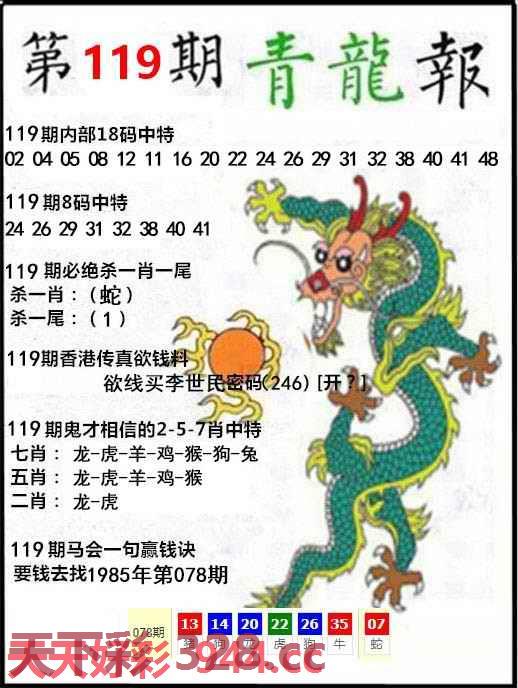 第119期青龍報
119期内部18码中特
02 04 05 08 12 11 16 20 22 24 26 29 31 32 38 40 41 48
119期8码中特
24 26 29 31 32 38 40 41
119期必绝杀一肖一尾
杀一肖：（蛇）
杀一尾：（1）
119期香港传真欲钱料
欲线买李世民密码(246) [开？]
119期鬼才相信的2-5-7肖中特
七肖：龙-虎-羊-鸡-猴-狗-兔
五肖：龙-虎-羊-鸡-猴
二肖：龙-虎
119期马会一句赢钱诀
要钱去找1985年第078期
078期 13 14 20 22 26 35 07
猪 狗 龙 虎 狗 牛 蛇